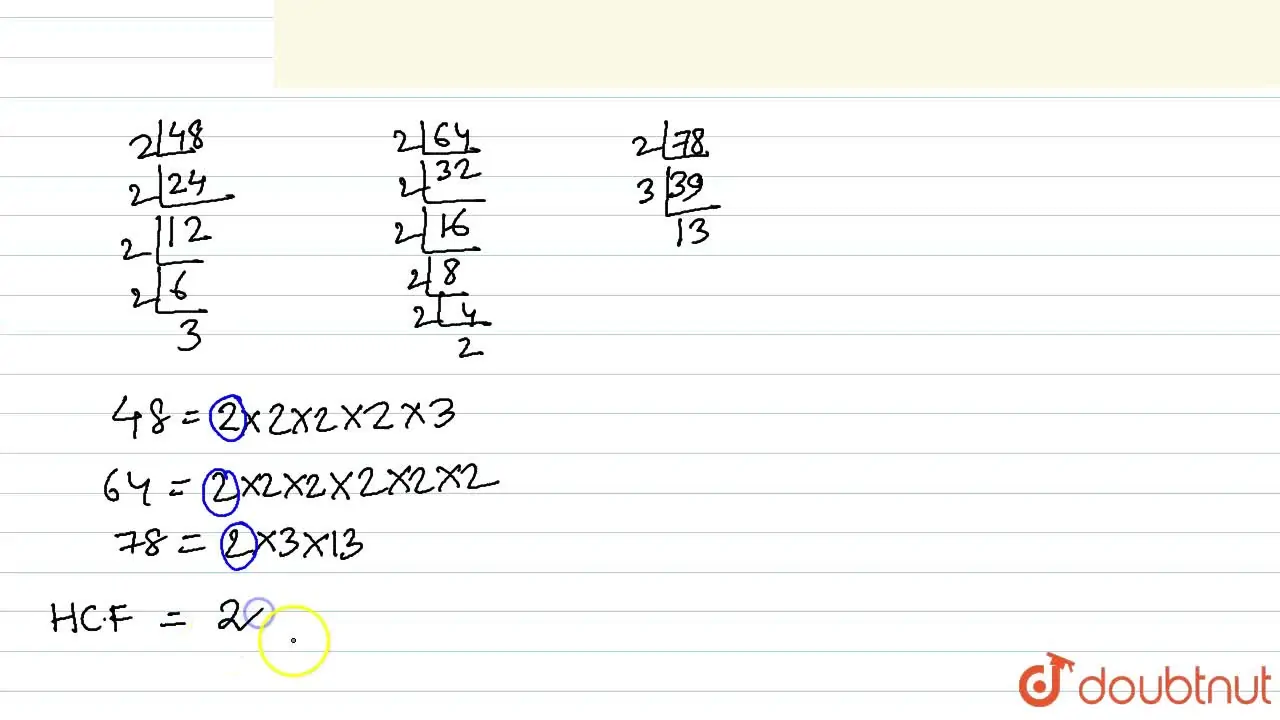 2 48
2 24
2 12
2 6
3
2 64
2 32
2 16
2 8
2 4
2
2 78
3 39
13
48 = 2×2×2×2×3
64 = 2×2×2×2×2×2
78 = 2×3×13
H.C.F = 2
doubtnut